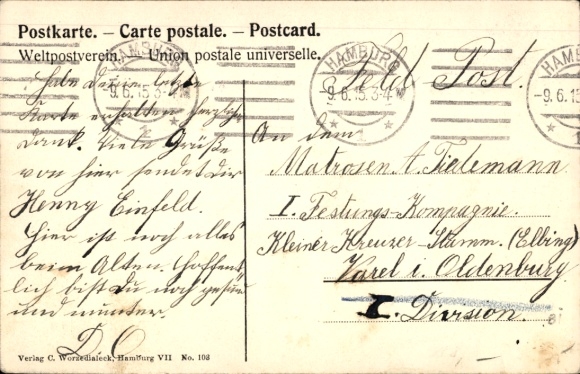 Postkarte. – Carte postale. – Postcard.
Weltpostverein. Union postale universelle.
HAMBURG
9.6.15.3-4N
HAMBURG
9.6.15.3-4N
HAMBURG
-9.6.15
Feld Post.
Habe Deine letzte
Karte erhalten herzlich
Dank. Viele Grüße
von hier sendet Dir
Henny Einfeld.
Hier ist noch alles
beim Alten. Hoffent-
lich bist Du noch gesund
und munter.
D. O
An dem
Matrosen A. Tiedemann
I. Festungs-Kompagnie.
Kleiner Kreuzer-Stamm. (Elbing)
Varel i. Oldenburg
I. Division.
Verlag C. Worzedialeck, Hamburg VII No. 108